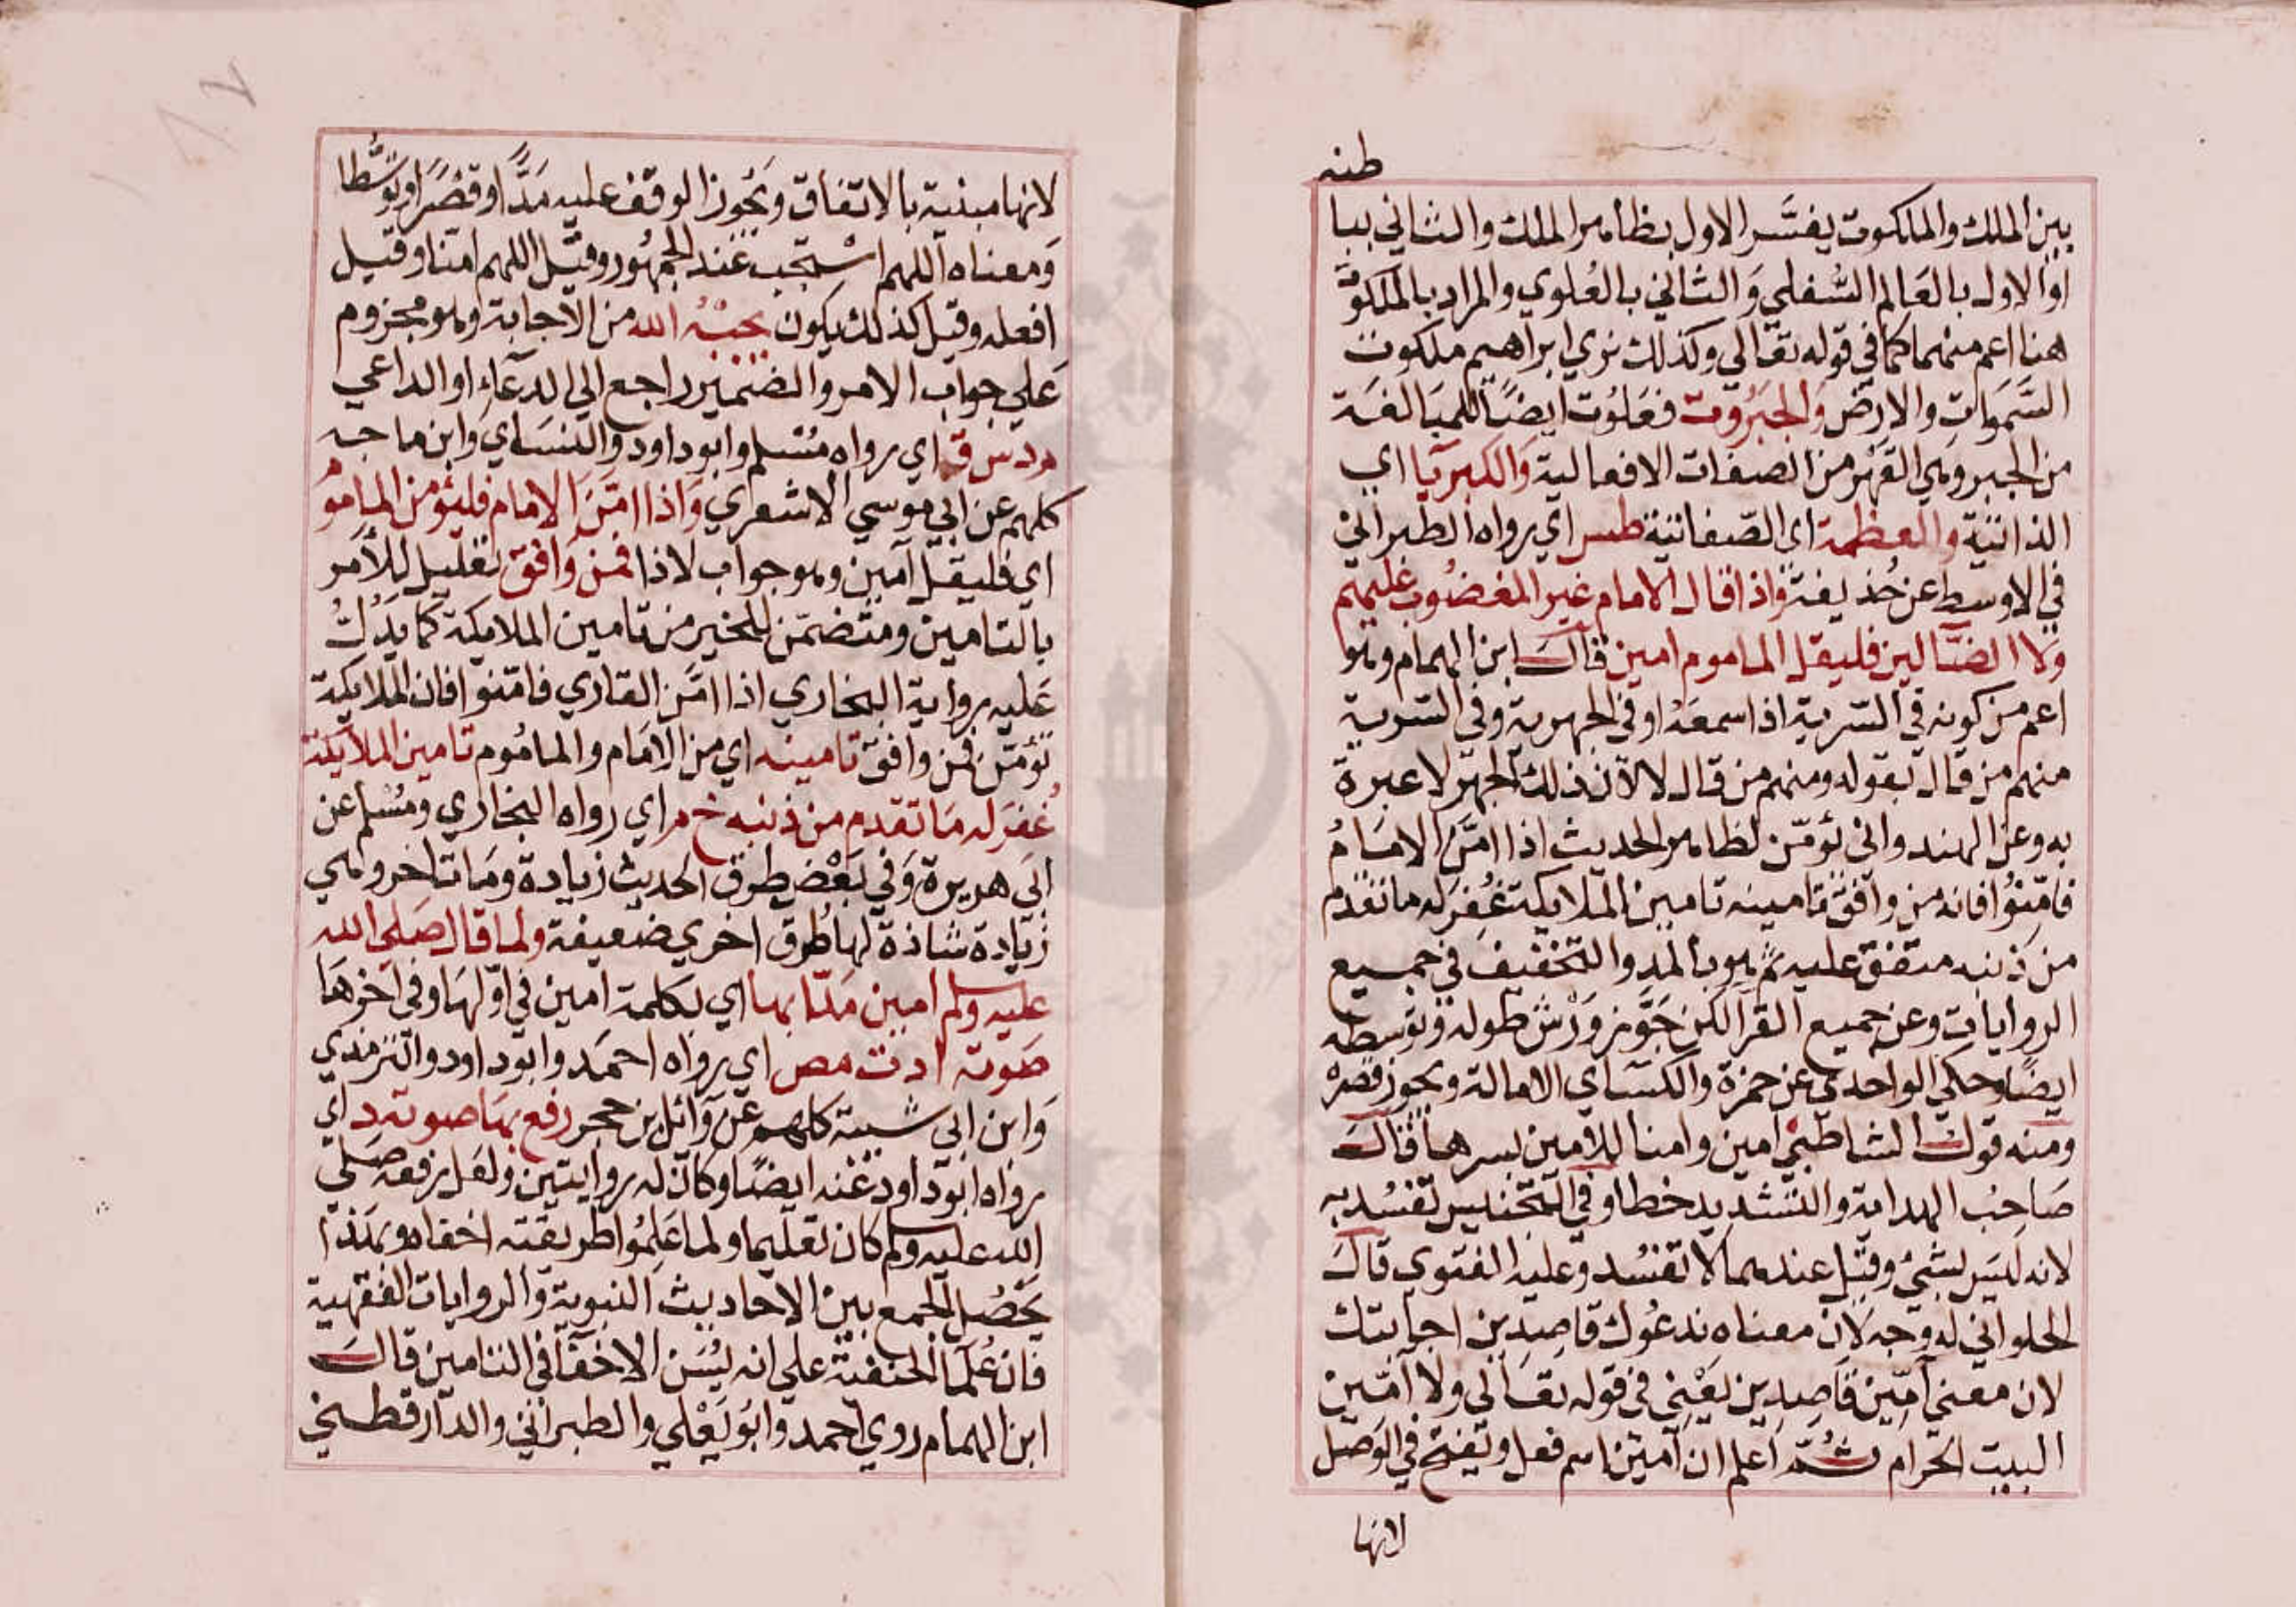 طنه
بين الملك والملكوت يفسَّر الاول بظاهر الملك والثاني ببا
او الاول بالعالم السُّفلي وَالثاني بالعُلوي والمراد بالملكوت
هنا اعم منهما كما في قوله تعالي وكذلك نري ابراهيم ملكوت
السَّموات والارض وَالجبَرُوت فعَلوُت ايضًا للمبَالغة
من الجبر وهي القهر من الصفات الافعالية وَالكبريَا اي
الذاتيَّة والعظمة اي الصّفاتية طس اي رواه الطبراني
في الاوسط عن حُذيفة وَاذا قال الامام غير المغضُوب عليهم
وَلا الضَّالين فليقل الماموم امين قال ابن الهمام وهو
اعم من كونه في السّرية اذا سمعَهُ او في الجهرية وفي السرية
منهم من قال يقوله ومنهم من قال لا لان ذلك الجهر لا عبرة
به وعن الهندواني يؤمّن لظاهر الحديث اذا امَّن الامَامُ
فامِّنُوا فانه من وافق تامينه تامين الملايكة غُفِرَ له ما تقدم
من ذنبه متفق عليه ثم هو بالمد والتخفيف في جميع
الروايات وعن جميع القرا لكن جَوَّز وَرْش طوله وتوسطه
ايضًا وحكي الواحدي عن حمزة والكسَاي الامالة ويجوز قصرُه
ومنه قول الشاطبيْ امين وامنا للامين بسرها قال
صَاحِب الهداية والتشديد خطا وفي التجنيس تفسُد به
لانه ليسَ بشيْ وقيل عندهما لا تفسُد وعليه الفتوي قال
الحلواني له وجه لان معناه ندعُوك قاصِدين اجابتك
لان معنى آمِّين قَاصِدين يَعْني في قوله تعَالي ولا آمّين
البيت الحرام ثُمَّ اَعلم ان آمين اسم فعل ويفتح في الوَصل
لانها
لانها مبنية بالاتفاق ويَجُوز الوقف عليه مَدًّا وقصْرًا وتوسُّطا
وَمعناه اللهم اسْتجب عند الجمهُور وقيل اللهم امّنا وقيل
افعله وقيل كذلك يكون يجبْهُ الله من الاجابة وهو مجزوم
عَلي جواب الامر والضمير راجع الي الدعَاء او الداعي
م د س ق اي رواه مُسْلم وابو داود والنسَاي وابن ماجه
كلهم عن ابي موسي الاشعري وَاذا امَّنَ الامام فليؤمن المامُومُ
اي فليقل آمين وهو جواب لاذا فمن وَافق تعليل للأمر
بالتامين ومتضمّن للخير من تامين الملايكة كما يدُلُّ
عَليه رواية البخاري اذا امَّن القاري فامّنوا فان الملايكة
تؤمّن فمن وافق تامينه اي من الامَام والمامُوم تامين الملايكة
غُفرَ له مَا تقدم من ذنبه خ م اي رواه البخاري ومُسْلم عن
ابي هريرة وَفي بَعْض طرق الحديث زيادة ومَا تاخر وهي
زيادة شاذة لها طُرق اخري ضعيفة ولما قال صَلي الله
عليه وسلم امين مَدَّ بها اي بكلمة امين في اوّلهَا وفي اخرهَا
صَوته ا د ت مص اي رواه احمَد وابو داود والترمذي
وَابن ابي شيبة كلهم عَن وَآئل بن حجر رفع بهَا صوته د اي
رواه ابو داود عَنه ايضًا وكان له روايتين ولعَل رفعه صَلي
الله عليه وسلم كان تعليما ولما عَلِمُوا طريقته اخفاه وبهَذا
يَحصُل الجمع بين الاحاديث النبوية وَالروايات الفقهية
فان عُلمَا الحنفية علي انه يُسَن الاخفَآ في التامين قال
ابن الهمام روي احمد وابُو يَعْلي والطبراني والدارقطني